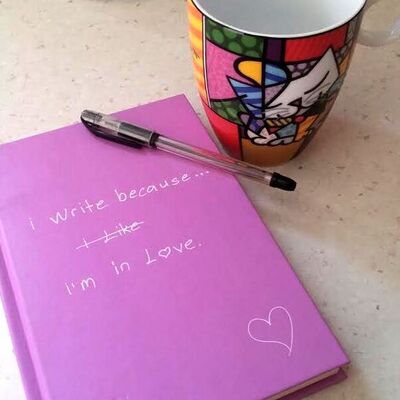 i write because...
I Like
I'm in Love.